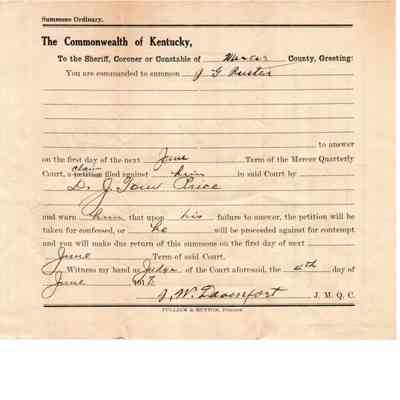 Summons Ordinary.
The Commonwealth of Kentucky,
To the Sheriff, Coroner or Constable of Mercer County, Greeting:
You are commanded to summon J G
to answer
on the first day of the next June Term of the Mercer Quarterly
claim
Court, a petition filed against him in said Court by
Dr J Tom Price
and warn him that upon his failure to answer, the petition will be
taken for confessed, or he will be proceeded against for contempt
and you will make due return of this summons on the first day of next
June Term of said Court.
Witness my hand as Judge of the Court aforesaid, the 4th day of
June 191
J. W. Davenport J. M. Q. C.
PULLIAM & HUTTON, Printers